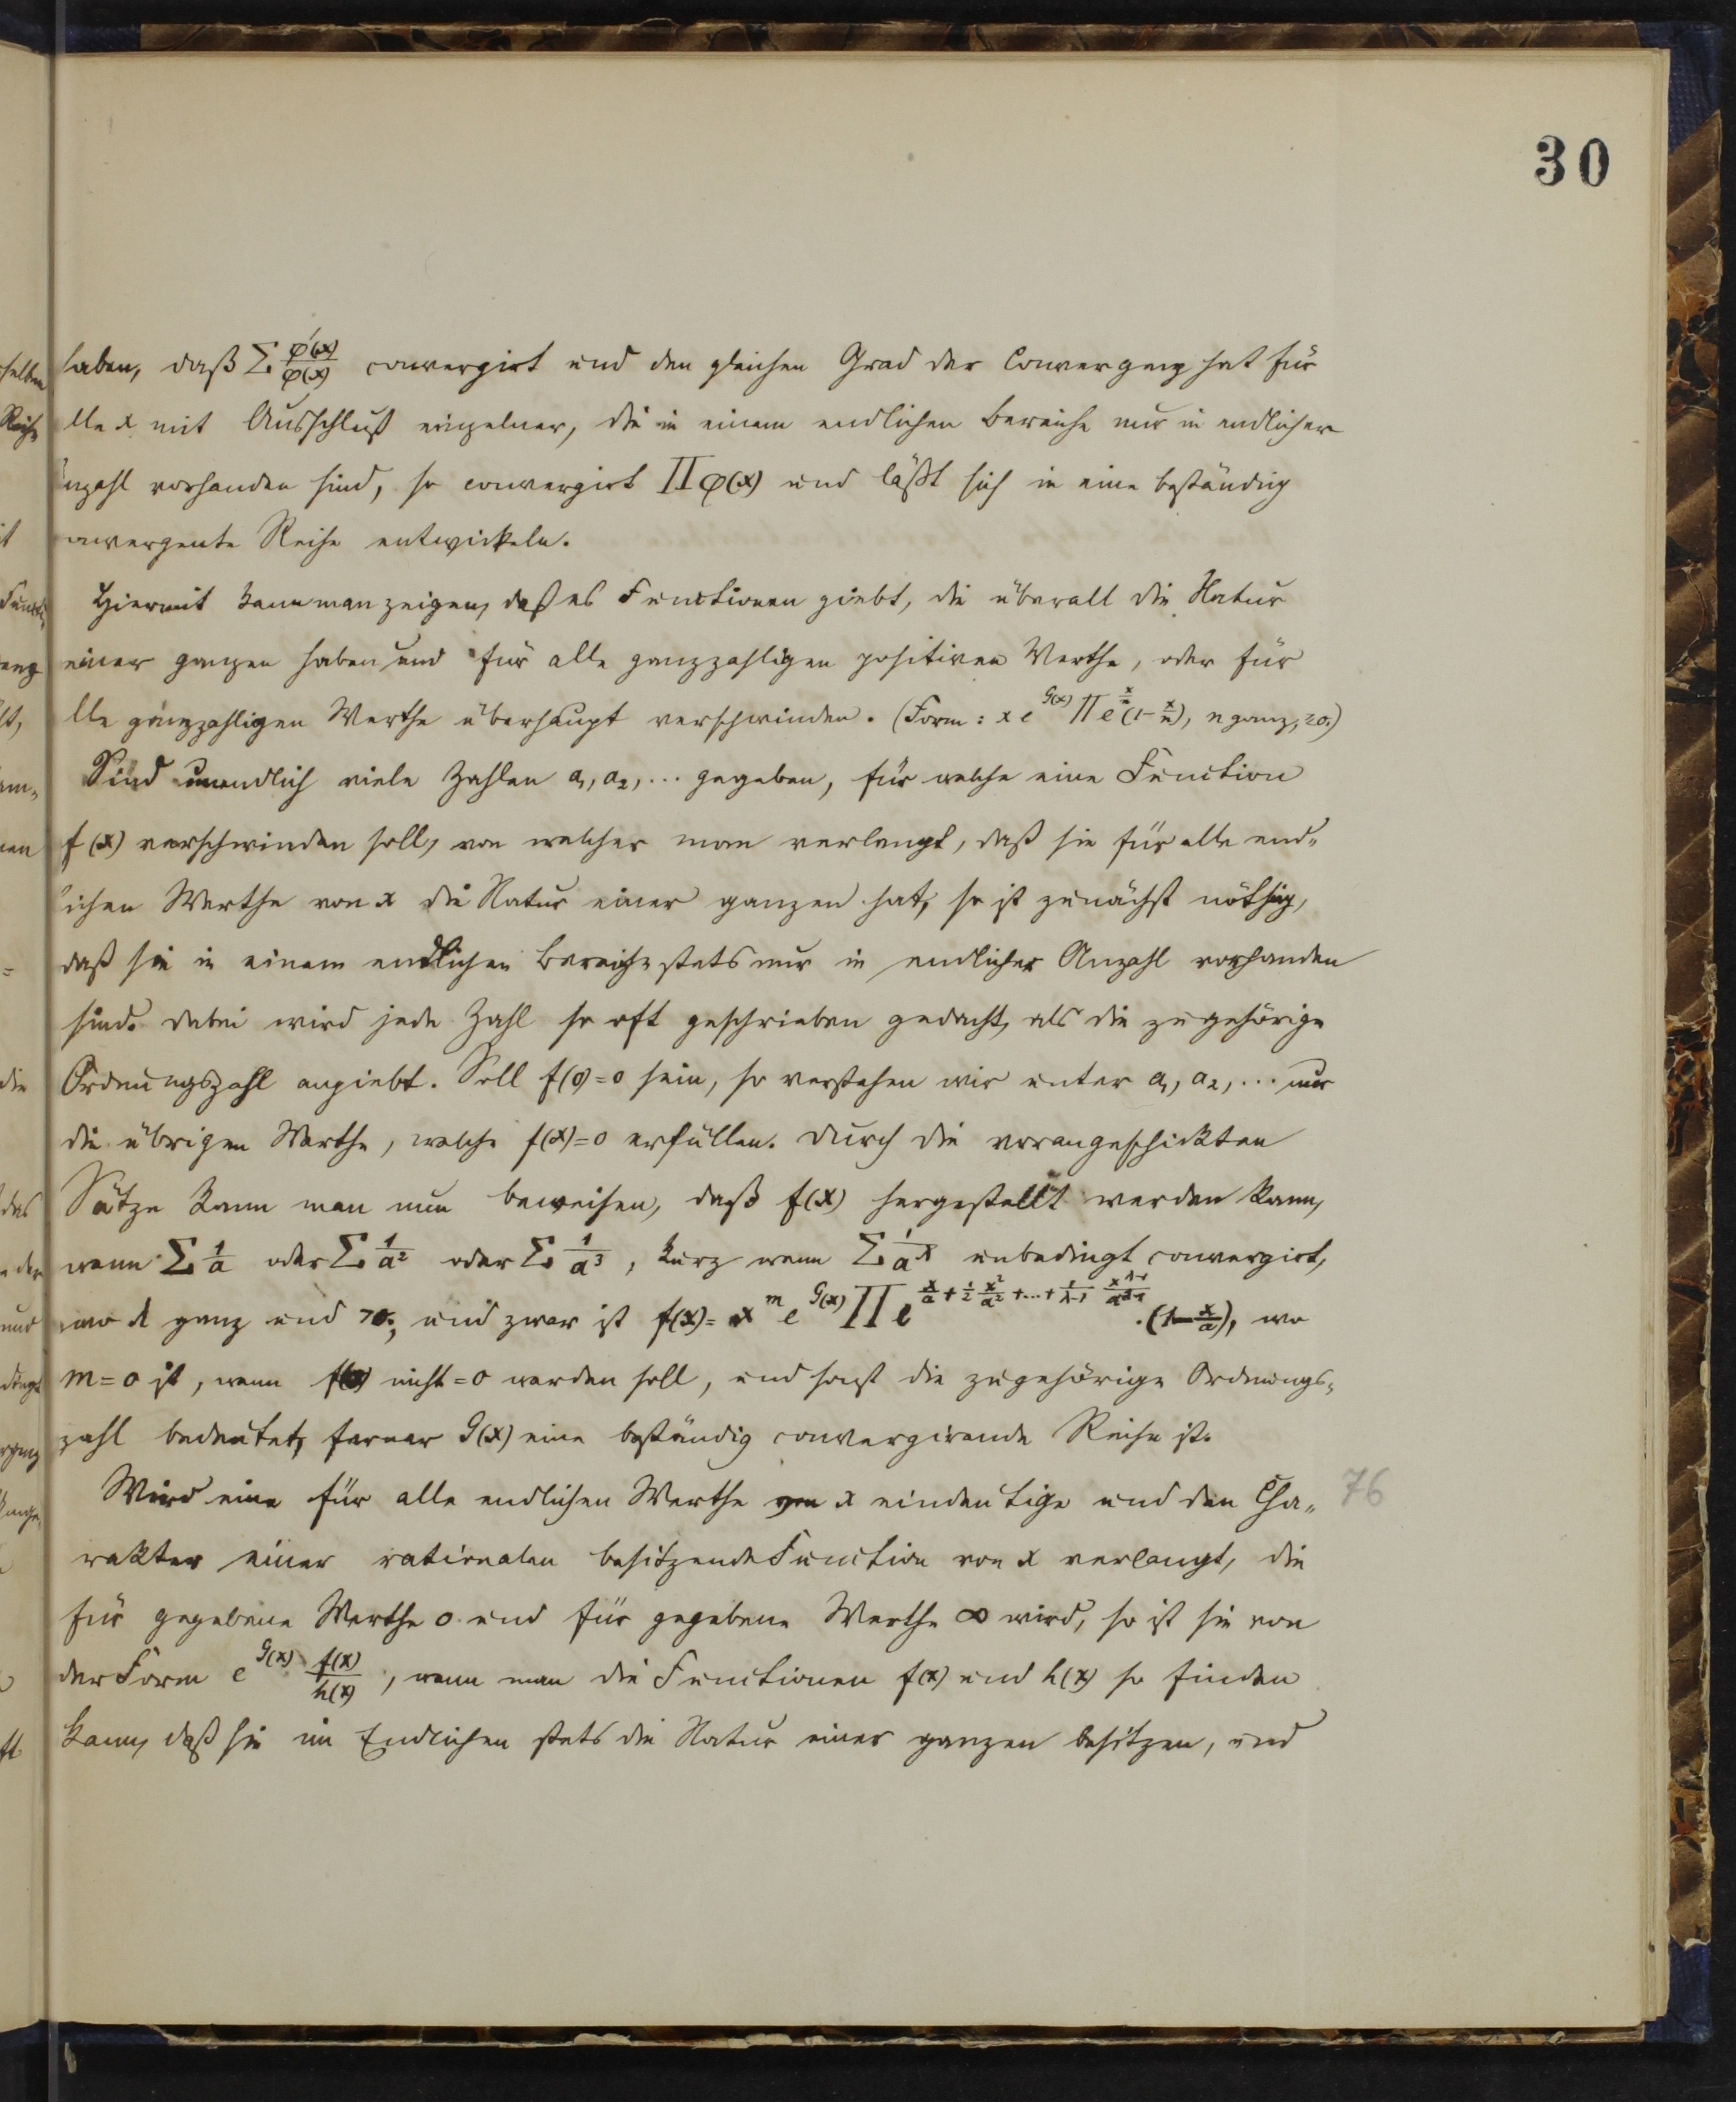 30
haben, daß Σ φ'(x)/φ(x) convergirt und den gleichen Grad der Convergenz hat für
lle x mit Ausschluß einzelner, die in einem endlichen Bereiche nur in endlicher
nzahl vorhanden sind, so convergirt Π φ(x) und läßt sich in eine beständig
onvergente Reihe entwickeln.
Hiermit kann man zeigen, daß es Functionen giebt, die überall die Natur
einer ganzen haben und für alle ganzzahligen positiven Werthe, oder für
lle ganzzahligen Werthe überhaupt verschwinden. (Form: x e^{G(x)} Π e^{x/n} (1-x/n), n ganz, ≷0.)
Sind unendlich viele Zahlen a₁, a₂, ... gegeben, für welche eine Function
f(x) verschwinden soll, von welcher man verlangt, daß sie für alle end-
ichen Werthe von x die Natur einer ganzen hat, so ist zunächst nöthig,
daß sie in einem endlichen Bereiche stets nur in endlicher Anzahl vorhanden
sind. Dabei wird jede Zahl so oft geschrieben gedacht, als die zugehörige
Ordnungszahl angiebt. Soll f(0)=0 sein, so verstehen wir unter a₁, a₂, ... nur
die übrigen Werthe, welche f(x)=0 erfüllen. Durch die vorangeschickten
Sätze kann man nun beweisen, daß f(x) hergestellt werden kann,
wenn Σ 1/a oder Σ 1/a² oder Σ 1/a³, kurz wenn Σ 1/a^λ unbedingt convergirt,
wo λ ganz und >0; und zwar ist f(x) = x^m e^{G(x)} Π e^{x/a + 1/2 x²/a² + ... + 1/(λ-1) x^{λ-1}/a^{λ-1}} · (1-x/a), wo
m=0 ist, wenn f(0) nicht =0 werden soll, und sonst die zugehörige Ordnungs-
zahl bedeutet, ferner G(x) eine beständig convergirende Reihe ist.
Wird eine für alle endlichen Werthe von x eindeutige und den Cha- 76
rakter einer rationalen besitzende Function von x verlangt, die
für gegebene Werthe 0 und für gegebene Werthe ∞ wird, so ist sie von
der Form e^{G(x)} f(x)/h(x), wenn man die Functionen f(x) und h(x) so finden
kann, daß sie im Endlichen stets die Natur einer ganzen besitzen, und